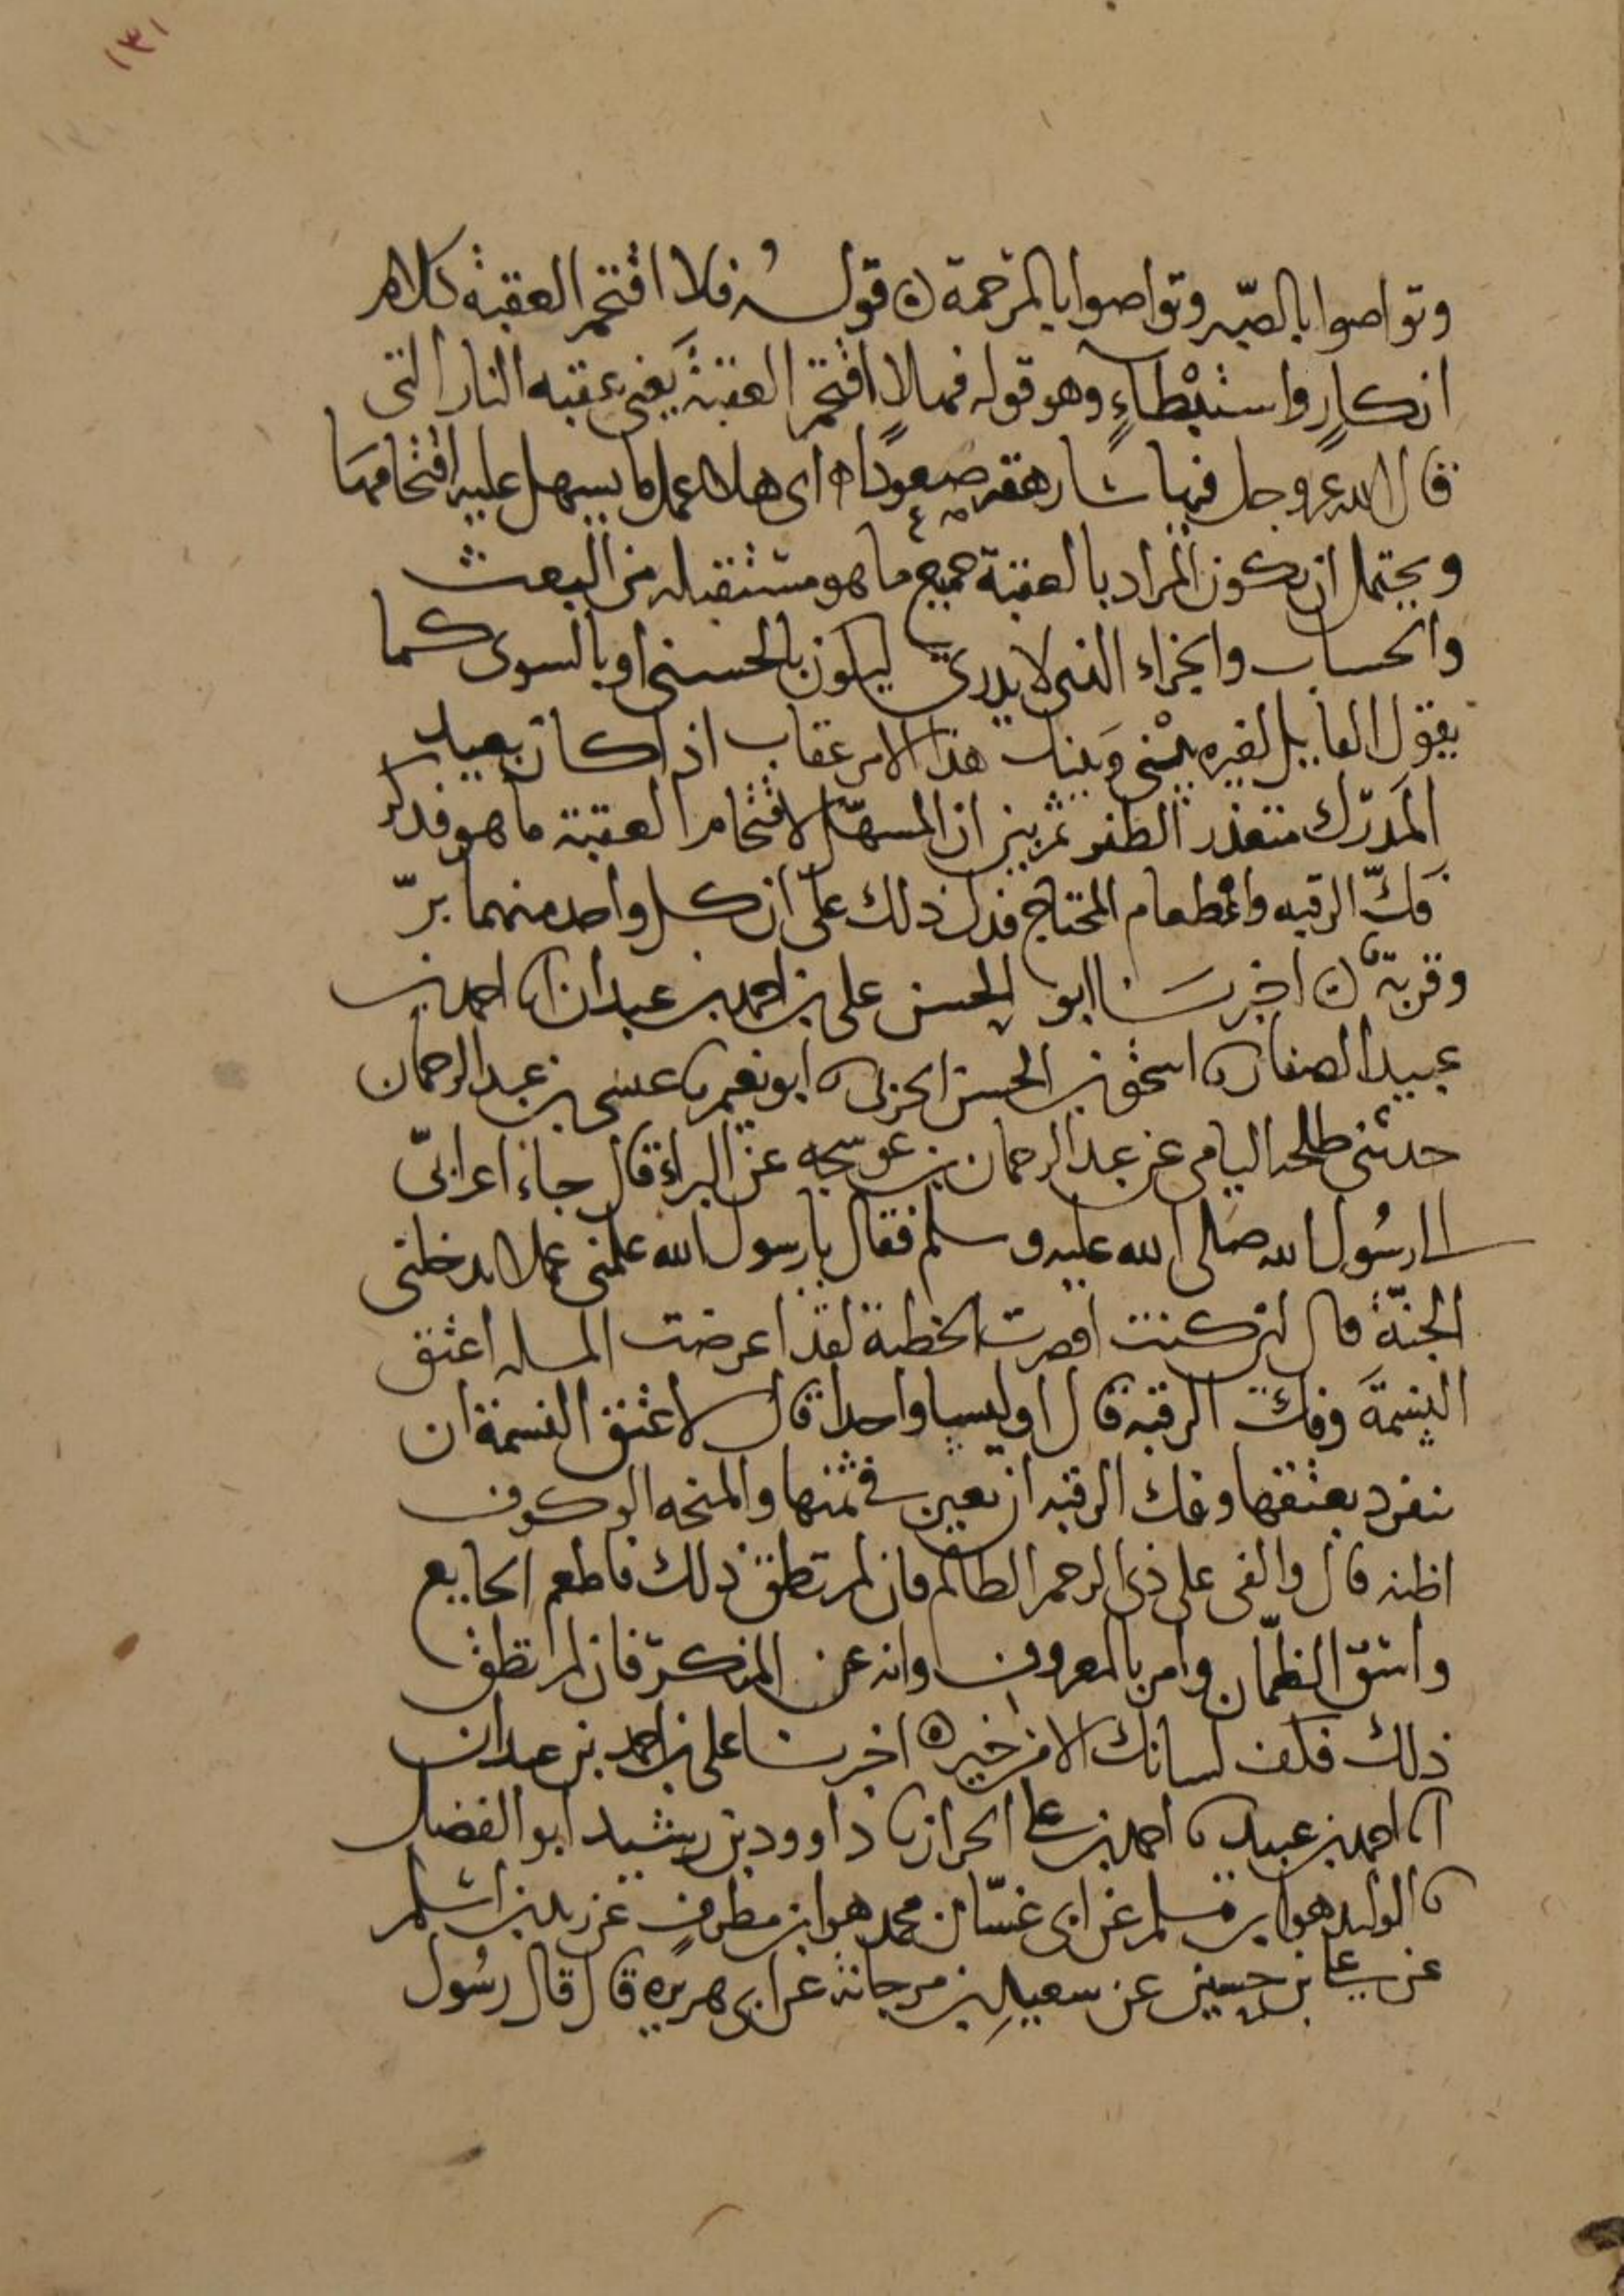 ١٣١
وتواصوا بالصّبر وتواصوا بالمرحمة ه قولـــه فلا اقتحم العقبة كلام
انكارٍ واستبْطاءٍ وهو قوله فهلا اقتحم العقبةَ يَعْنى عقبه النار التى
قال الله عز وجل فيها سارهقه صعودًا ه اى هلا عمل ما يسهل عليه اقتحامها
ويحتمل ان يكون المراد بالعقبة جميع ما هو مستقبله من البعث
والحساب والجزاء الذى لا يدرى ليكون بالحسنى او بالسوى كما
يقول القايل لغيره بيْنى وَبينك هذا الامر عقاب اذا كان بعيد
المَدرك متعذر الظفر ثم بين ان المسهّل لاقتحام العقبة ما هو فذكر
فَكّ الرقبه واطعام المحتاج فدل ذلك على ان كل واحد منهما برّ
وقربة ه اخبرنـــا ابو الحسن على بن احمد بن عبدان انا احمد بن
عبيد الصفار نا اسحق بن الحسن الحربى نا ابو نعيم نا عيسى بن عبد الرحمان
حدثنى طلحه اليامى عن عبد الرحمان بن عوسجه عن البراء قال جاء اعرابىّ
الى رسُول الله صَلى الله عليه وسلم فقال يا رسول الله علمنى عملا يدخلنى
الجنّةَ قال لئن كنت اقصرت الخطبة لقد اعرضت المسله اعتق
النسَمةَ وفك الرقبة قال اوليسا واحدا قال لا عتق النسمة ان
تنفرد بعتقها وفك الرقبه ان تعين فى ثمنها والمنحه الوكوف
اظنه قال والفى على ذى الرحم الظالم فان لم تطق ذلك فاطعم الجايع
واسق الظمّان وامر بالمعروف وانه عن المنكر فان لم تطق
ذلك فكف لسانك الا من خير ه اخبرنـــا على بن احمد بن عبدان
انا احمد بن عبيد نا احمد بن على الخراز نا داوود بن رشيد ابو الفضل
نا الوليد هو ابن مسلم عن ابى غسّان محمد هو ابن مطرفٍ عن زيد بن اسلم
عن على بن حسين عن سعيدِ بن مرجانة عن ابى هريره قال قال رسُول